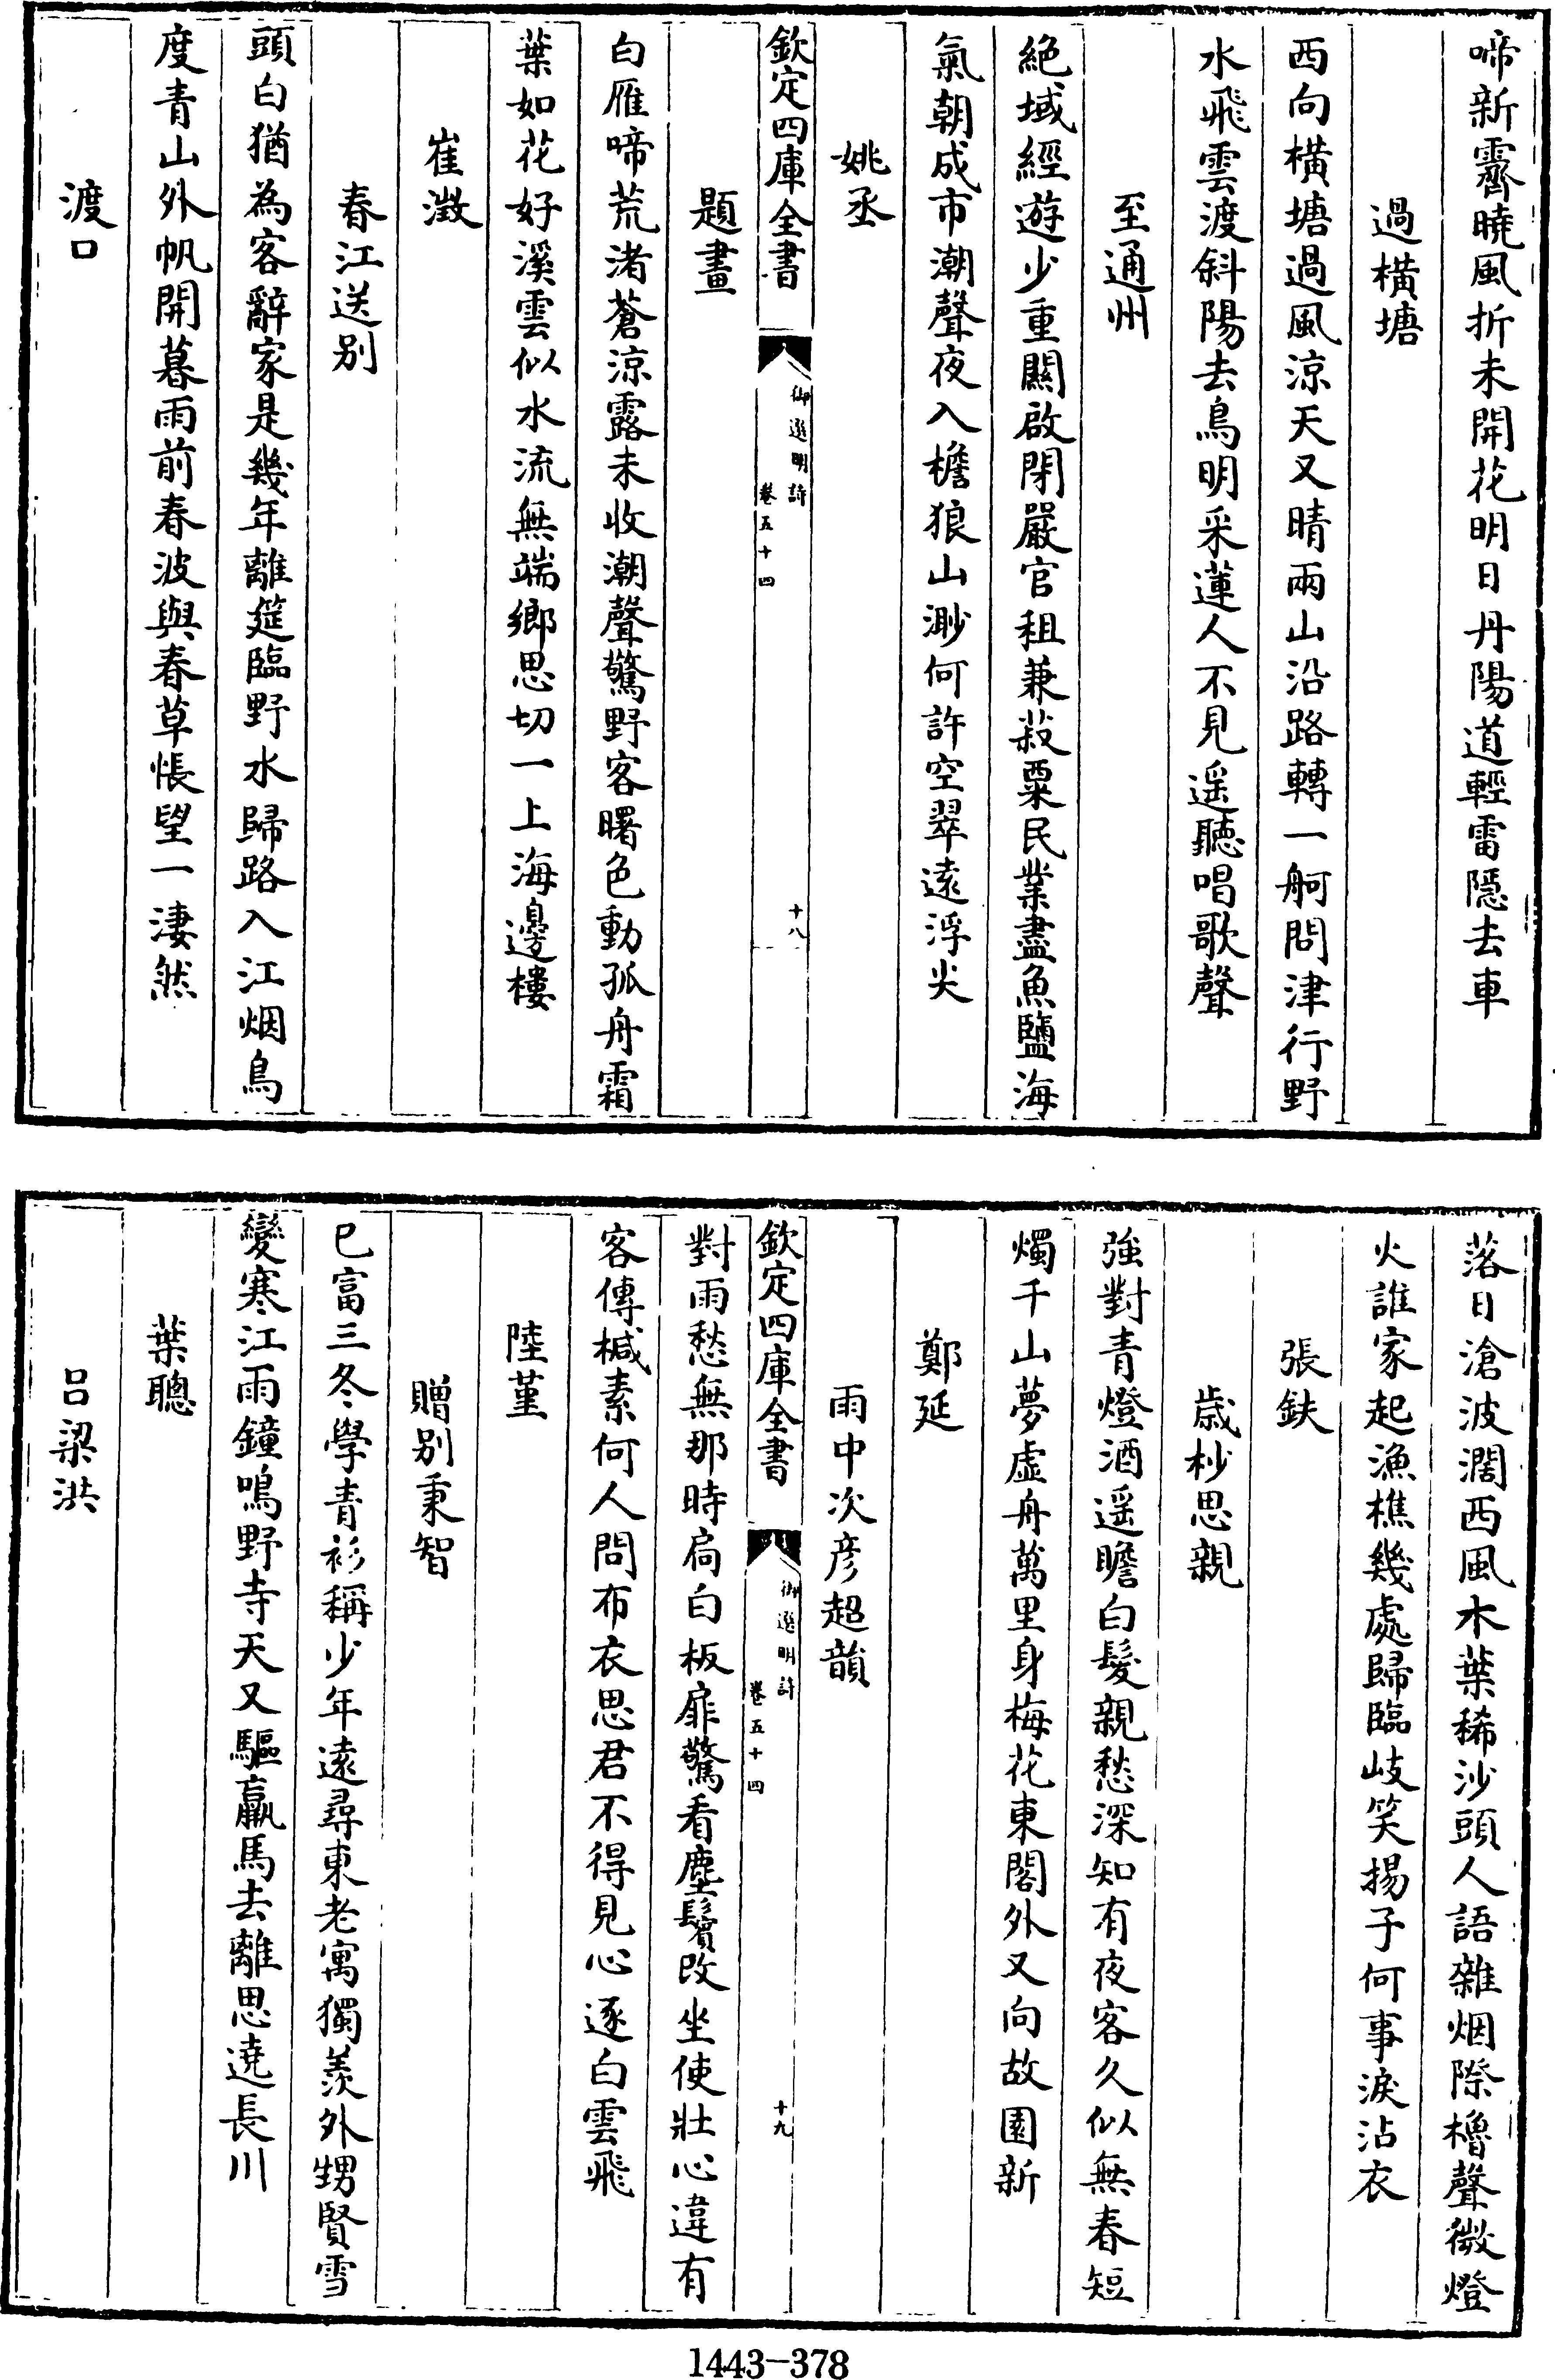 啼新霽曉風折未開花明日丹陽道輕雷隱去車
過橫塘
西向橫塘過風涼天又晴兩山沿路轉一舸問津行野
水飛雲渡斜陽去鳥明采蓮人不見遥聽唱歌聲
至通州
絶域經遊少重關啟閉嚴官租兼菽粟民業盡魚鹽海
氣朝成市潮聲夜入檐狼山渺何許空翠遠浮尖
姚丞
欽定四庫全書
御選明詩
卷五十四
十八
題畫
白雁啼荒渚蒼涼露未收潮聲驚野客曙色動孤舟霜
葉如花好溪雲似水流無端鄉思切一上海邊樓
崔澂
春江送别
頭白猶為客辭家是幾年離筵臨野水歸路入江烟鳥
度青山外帆開暮雨前春波與春草悵望一淒然
渡口
落日滄波濶西風木葉稀沙頭人語雜烟際櫓聲微燈
火誰家起漁樵幾處歸臨岐笑揚子何事淚沾衣
張鈇
歲杪思親
強對青燈酒遥瞻白髮親愁深知有夜客久似無春短
燭千山夢虛舟萬里身梅花東閣外又向故園新
鄭延
雨中次彦超韻
欽定四庫全書
御選明詩
卷五十四
十九
對雨愁無那時扃白板扉驚看塵鬢改坐使壯心違有
客傳椷素何人問布衣思君不得見心逐白雲飛
陸堇
贈别秉智
已富三冬學青衫稱少年遠尋東老寓獨羨外甥賢雪
變寒江雨鐘鳴野寺天又驅羸馬去離思遶長川
葉聰
吕梁洪
1443-378